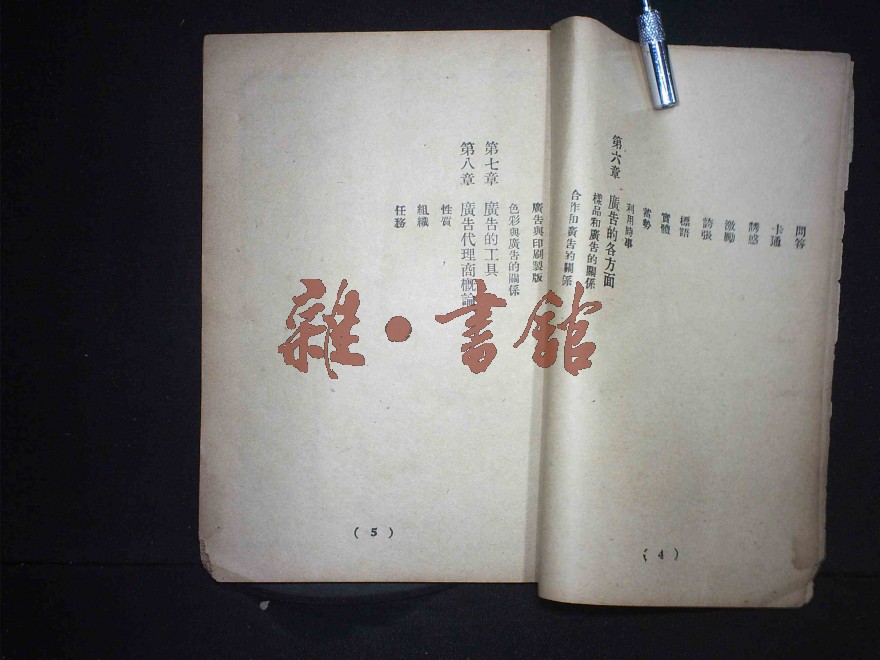 問答
卡通
誘惑
激勵
誇張
標語
實體
蓄勢
利用時事
第六章 廣告的各方面
樣品和廣告的關係
合作和廣告的關係
( 4 )
廣告與印刷製版
色彩與廣告的關係
第七章 廣告的工具
第八章 廣告代理商概論
性質
組織
任務
( 5 )
雜·書館